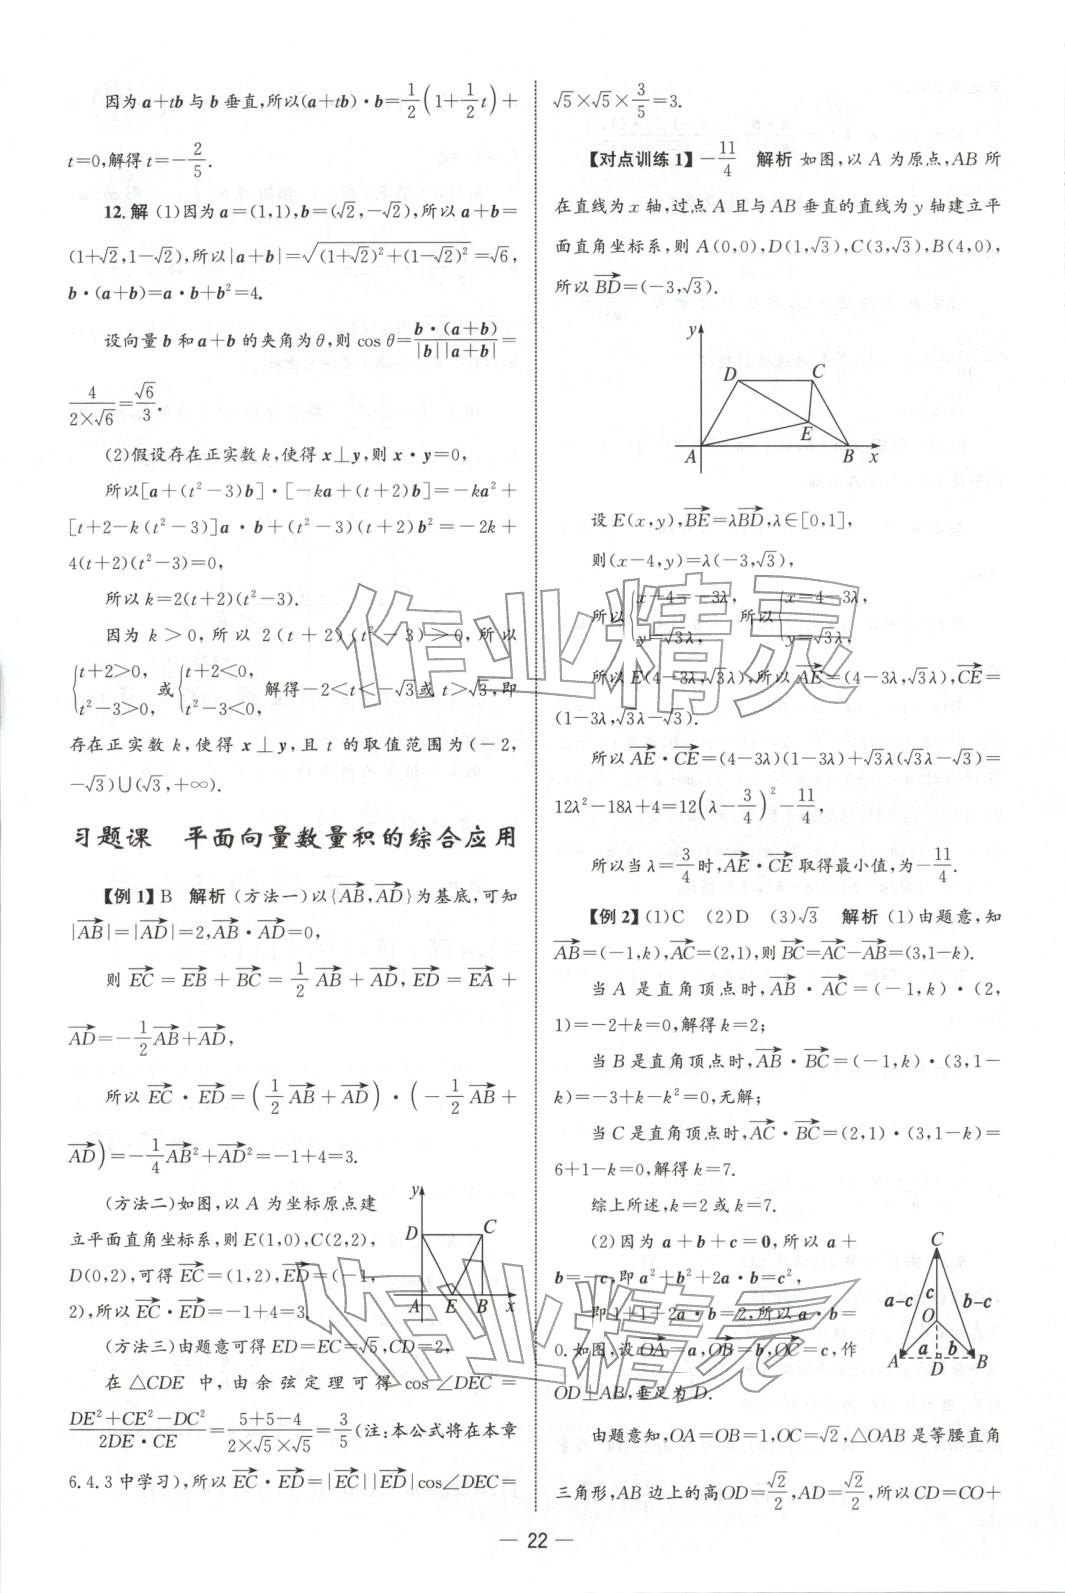 因为a+tb与b垂直,所以(a+tb)·b=1/2(1+1/2t)+
t=0,解得t=-2/5.
12.解 (1)因为a=(1,1),b=(√2,-√2),所以a+b=
(1+√2,1-√2),所以|a+b|=√((1+√2)²+(1-√2)²)=√6,
b·(a+b)=a·b+b²=4.
设向量b和a+b的夹角为θ,则cos θ=b·(a+b)/|b||a+b|=
4/(2×√6)=√6/3.
(2)假设存在正实数k,使得x⊥y,则x·y=0,
所以[a+(t²-3)b]·[-ka+(t+2)b]=-ka²+
[t+2-k(t²-3)]a·b+(t²-3)(t+2)b²=-2k+
4(t+2)(t²-3)=0,
所以k=2(t+2)(t²-3).
因为k>0,所以2(t+2)(t²-3)>0,所以
{t+2>0, t²-3>0, 或{t+2<0, t²-3<0, 解得-2<t<-√3或t>√3,即
存在正实数k,使得x⊥y,且t的取值范围为(-2,
-√3)∪(√3,+∞).
习题课 平面向量数量积的综合应用
【例1】B 解析 (方法一)以{AB→,AD→}为基底,可知
|AB→|=|AD→|=2,AB→·AD→=0,
则EC→=EB→+BC→=1/2AB→+AD→,ED→=EA→+
AD→=-1/2AB→+AD→,
所以EC→·ED→=(1/2AB→+AD→)·(-1/2AB→+
AD→)=-1/4AB→²+AD→²=-1+4=3.
(方法二)如图,以A为坐标原点建
立平面直角坐标系,则E(1,0),C(2,2),
D(0,2),可得EC→=(1,2),ED→=(-1,
2),所以EC→·ED→=-1+4=3.
y
D C
A E B x
(方法三)由题意可得ED=EC=√5,CD=2,
在△CDE中,由余弦定理可得cos∠DEC=
(DE²+CE²-DC²)/(2DE·CE)=(5+5-4)/(2×√5×√5)=3/5(注:本公式将在本章
6.4.3中学习),所以EC→·ED→=|EC→||ED→|cos∠DEC=
√5×√5×3/5=3.
【对点训练1】-11/4 解析 如图,以A为原点,AB所
在直线为x轴,过点A且与AB垂直的直线为y轴建立平
面直角坐标系,则A(0,0),D(1,√3),C(3,√3),B(4,0),
所以BD→=(-3,√3).
y
D C
E
A B x
设E(x,y),BE→=λBD→,λ∈[0,1],
则(x-4,y)=λ(-3,√3),
所以{x-4=-3λ, y=√3λ, 所以{x=4-3λ, y=√3λ,
所以E(4-3λ,√3λ),所以AE→=(4-3λ,√3λ),CE→=
(1-3λ,√3λ-√3).
所以AE→·CE→=(4-3λ)(1-3λ)+√3λ(√3λ-√3)=
12λ²-18λ+4=12(λ-3/4)²-11/4,
所以当λ=3/4时,AE→·CE→取得最小值,为-11/4.
【例2】(1)C (2)D (3)√3 解析 (1)由题意,知
AB→=(-1,k),AC→=(2,1),则BC→=AC→-AB→=(3,1-k).
当A是直角顶点时,AB→·AC→=(-1,k)·(2,
1)=-2+k=0,解得k=2;
当B是直角顶点时,AB→·BC→=(-1,k)·(3,1-
k)=-3+k-k²=0,无解;
当C是直角顶点时,AC→·BC→=(2,1)·(3,1-k)=
6+1-k=0,解得k=7.
综上所述,k=2或k=7.
(2)因为a+b+c=0,所以a+
b=-c,即a²+b²+2a·b=c²,
即1+1+2a·b=2,所以a·b=
0.如图,设OA→=a,OB→=b,OC→=c,作
OD⊥AB,垂足为D.
C
a-c c b-c
O
a b
A D B
由题意知,OA=OB=1,OC=√2,△OAB是等腰直角
三角形,AB边上的高OD=√2/2,AD=√2/2,所以CD=CO+
— 22 —
作业精灵
作业精灵